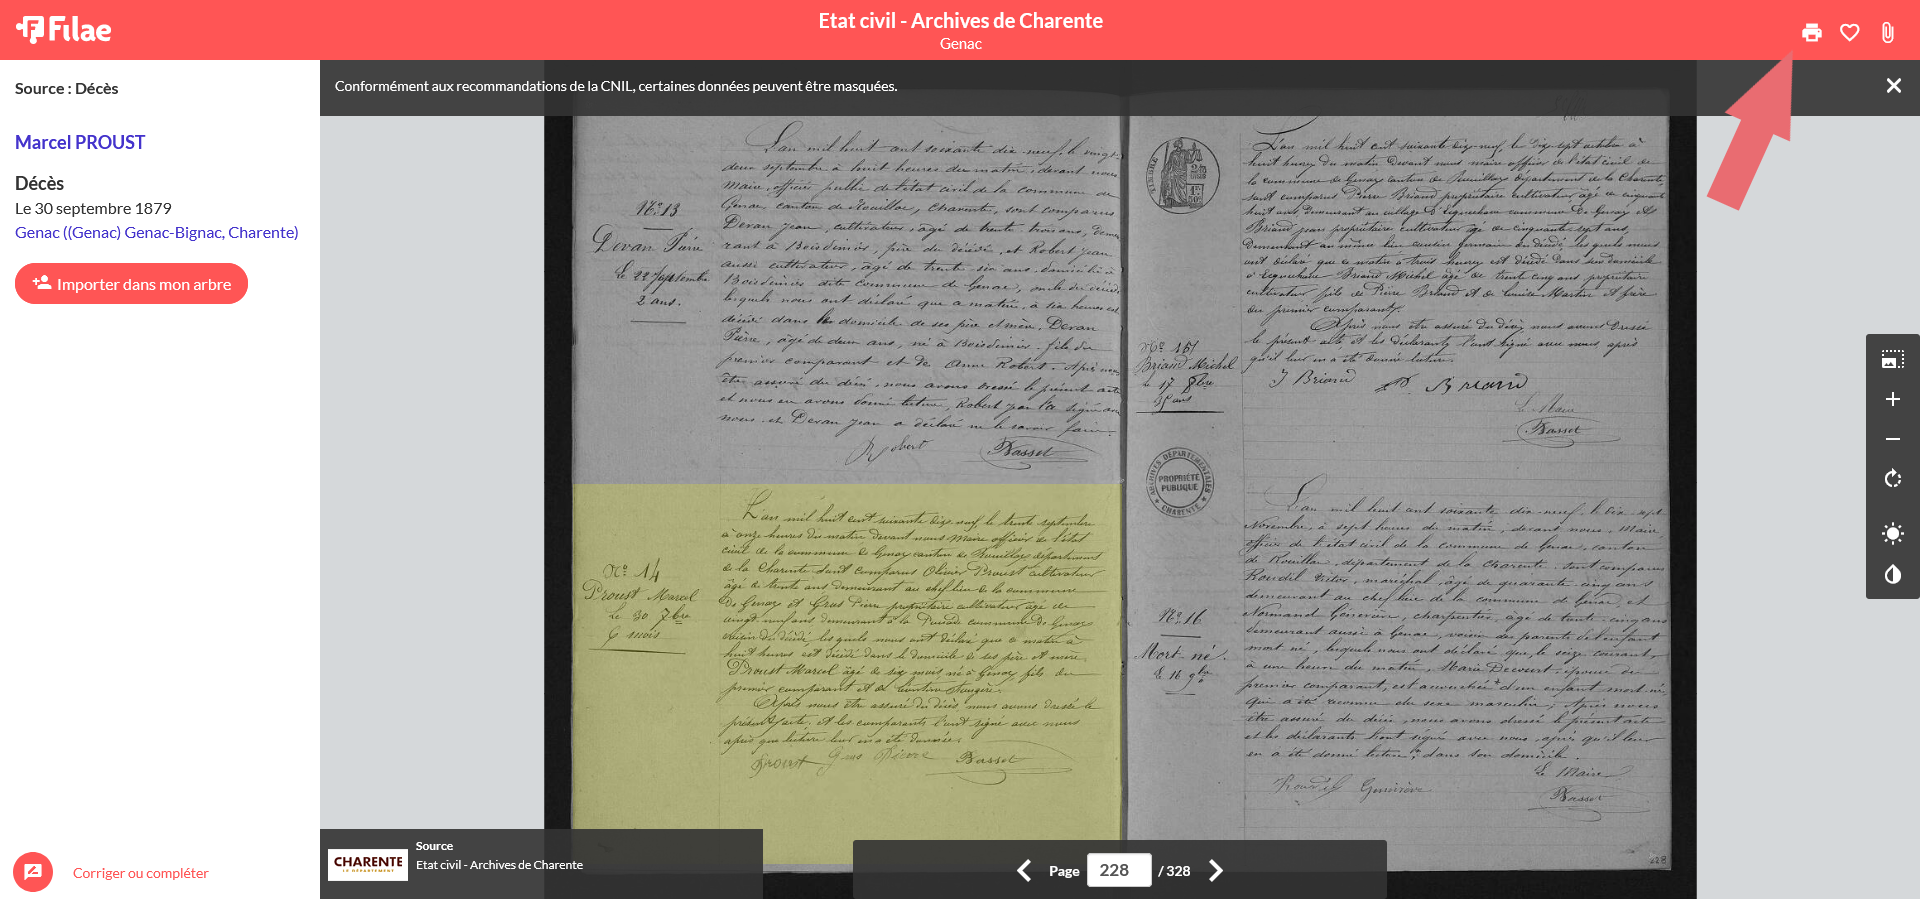 Filae
Etat civil - Archives de Charente
Genac
Source : Décès
Marcel PROUST
Décès
Le 30 septembre 1879
Genac ((Genac) Genac-Bignac, Charente)
Importer dans mon arbre
Corriger ou compléter
Conformément aux recommandations de la CNIL, certaines données peuvent être masquées.
L'an mil huit cent soixante dix-neuf, le vingt
deux septembre à huit heures du matin, devant nous
Maire, officier public de l'état civil de la commune de
Genac, canton de Rouillac, Charente, sont comparus
Devan Jean, cultivateur, âgé de trente trois ans, demeu
rant à Boisdinier, père du décédé, et Robert Jean
aussi cultivateur, âgé de trente six ans, domicilié à
lesquels nous ont déclaré que ce matin, à six heures est
décédé dans le domicile de ses père et mère, Devan
Pierre, âgé de deux ans, né à
premier comparant et de Anne Robert. Après nous
être assuré du décès, nous avons dressé le présent acte
et nous en avons donné lecture, Robert Jean l'a signé avec
nous et Devan Jean a déclaré ne le savoir faire.
Robert Basset
N° 13
Devan Pierre
Le 22 septembre
2 ans.
L'an mil huit cent soixante dix neuf, le trente septembre
à onze heures du matin devant nous Maire officier de l'état
civil de la commune de Genac canton de Rouillac département
de la Charente sont comparus Olivier Proust cultivateur
âgé de trente ans demeurant au chef lieu de la commune
de Genac et Gros Pierre propriétaire cultivateur âgé de
vingt neuf ans demeurant à la commune de Genac
voisin du décédé, lesquels nous ont déclaré que ce matin à
huit heures est décédé dans le domicile de ses père et mère
Proust Marcel âgé de six mois né à Genac fils du
premier comparant et de
Après nous être assuré du décès nous avons dressé le
présent acte et les comparants l'ont signé avec nous
après que lecture leur en a été donnée.
Proust Gros Pierre Basset
N° 14
Proust Marcel
Le 30 7bre
6 mois
TIMBRE
L'an mil huit cent soixante dix-neuf, le dix sept octobre à
huit heures du matin devant nous maire officier de l'état civil de
la commune de Genac canton de Rouillac département de la Charente,
sont comparus Pierre Briand propriétaire cultivateur, âgé de cinquante
huit ans, demeurant au village d'Equechere commune de Genac et
Briand Jean propriétaire cultivateur âgé de cinquante sept ans,
demeurant au même lieu cousin germain du décédé lesquels nous
ont déclaré que ce matin à trois heures est décédé dans son domicile
Briand Michel âgé de trente cinq ans propriétaire
cultivateur fils de Pierre Briand et de Martin
du premier comparant.
Après nous être assuré du décès nous avons dressé
le présent acte et les déclarants l'ont signé avec nous, après
qu'il leur en a été donné lecture.
J Briand P. Briand
Le Maire
Basset
Briand Michel
Le 17 8bre
35 ans
ARCHIVES DÉPARTEMENTALES
PROPRIÉTÉ
PUBLIQUE
CHARENTE
L'an mil huit cent soixante dix-neuf, le dix sept
Novembre, à sept heures du matin, devant nous, Maire
officier de l'état civil de la commune de Genac, canton
de Rouillac, département de la Charente, sont comparus
Roudil Victor, maréchal, âgé de quarante cinq ans
demeurant au chef lieu de la commune de Genac, et
Normand Génerève, charpentier, âgé de trente cinq ans
demeurant aussi à Genac, voisin des parents de l'enfant
mort né, lesquels nous ont déclaré que, le seize courant,
à une heure du matin, Marie épouse du
premier comparant, est accouchée d'un enfant mort né,
qui a été reconnu du sexe masculin ; Après nous
être assuré du décès, nous avons dressé le présent acte
et les déclarants l'ont signé avec nous, après qu'il leur
en a été donné lecture, dans son domicile.
Le Maire
Roudil Génerève Basset
N° 16
Mort-né.
Le 16 9bre
228
Source
CHARENTE
LE DÉPARTEMENT
Etat civil - Archives de Charente
Page 228 / 328